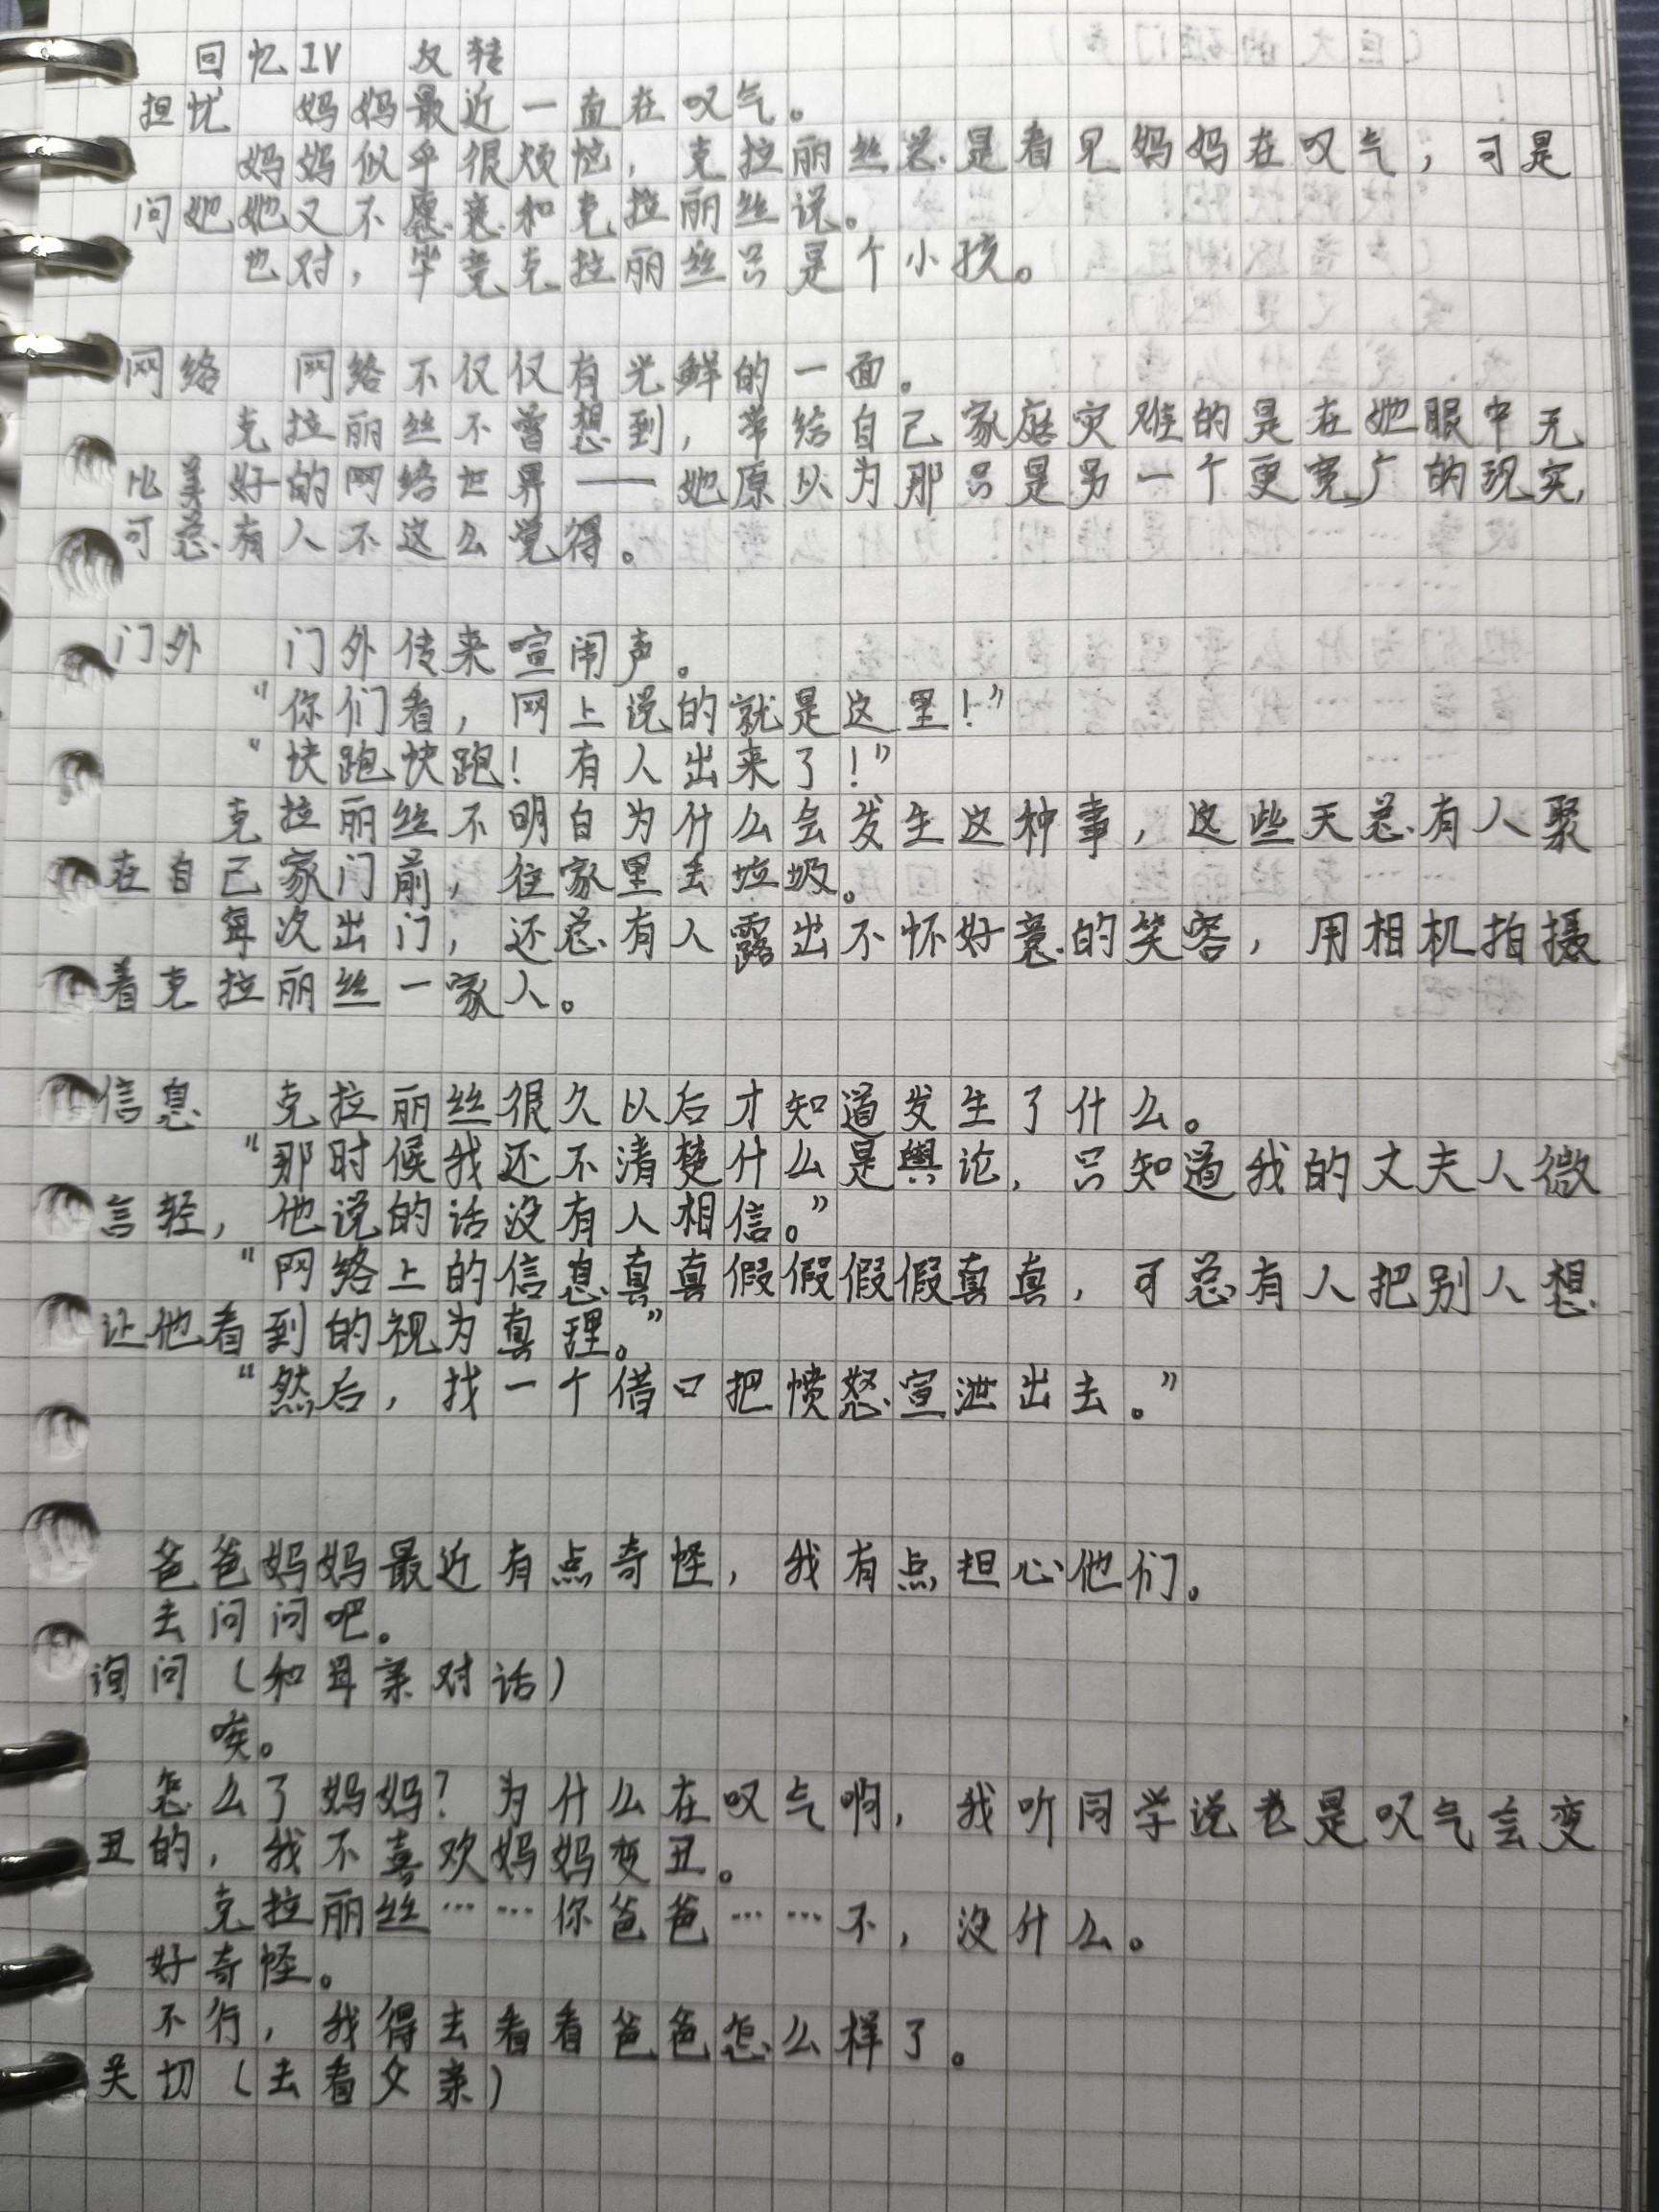 回忆IV 反转
担忧 妈妈最近一直在叹气。
妈妈似乎很烦恼，克拉丽丝总是看见妈妈在叹气，可是
问她她又不愿意和克拉丽丝说。
也对，毕竟克拉丽丝只是个小孩。
网络 网络不仅仅有光鲜的一面。
克拉丽丝不曾想到，带给自己家庭灾难的是在她眼中无
比美好的网络世界——她原以为那只是另一个更宽广的现实，
可总有人不这么觉得。
门外 门外传来喧闹声。
“你们看，网上说的就是这里！”
“快跑快跑！有人出来了！”
克拉丽丝不明白为什么会发生这种事，这些天总有人聚
在自己家门前，往家里丢垃圾。
每次出门，还总有人露出不怀好意的笑容，用相机拍摄
着克拉丽丝一家人。
信息 克拉丽丝很久以后才知道发生了什么。
“那时候我还不清楚什么是舆论，只知道我的丈夫人微
言轻，他说的话没有人相信。”
“网络上的信息真真假假假假真真，可总有人把别人想
让他看到的视为真理。”
“然后，找一个借口把愤怒宣泄出去。”
爸爸妈妈最近有点奇怪，我有点担心他们。
去问问吧。
询问（和母亲对话）
唉。
怎么了妈妈？为什么在叹气啊，我听同学说老是叹气会变
丑的，我不喜欢妈妈变丑。
克拉丽丝……你爸爸……不，没什么。
好奇怪。
不行，我得去看看爸爸怎么样了。
关切（去看父亲）